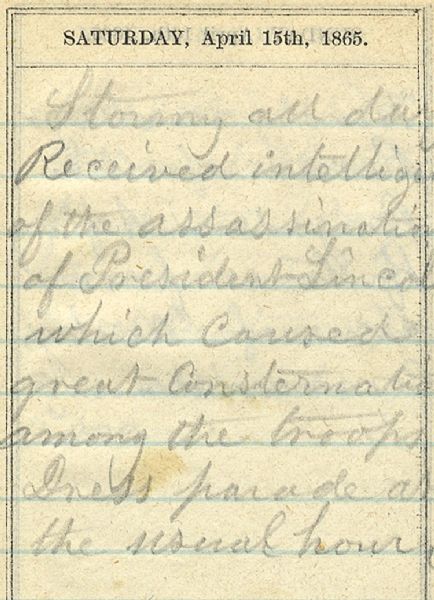 SATURDAY, April 15th, 1865.
Stormy all day
Received intellige
of the assassinatio
of President Lincol
which caused
great Consternatio
among the troops
Dress parade at
the usual hour